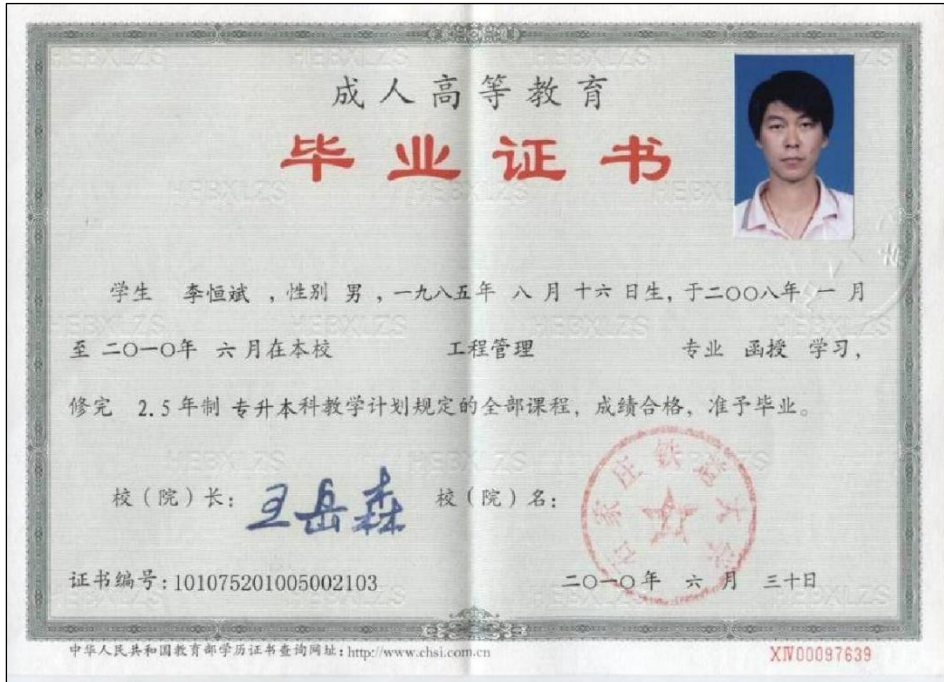 成人高等教育
毕业证书
学生 李恒斌 ，性别 男 ，一九八五年 八 月 十六 日生，于二〇〇八年 一 月
至 二〇一〇年 六 月在本校 工程管理 专业 函授 学习，
修完 2.5 年制 专升本科教学计划规定的全部课程，成绩合格，准予毕业。
校（院）长： 王岳森 校（院）名：
石家庄铁道大学
证书编号：101075201005002103 二〇一〇年 六 月 三十日
中华人民共和国教育部学历证书查询网址：http://www.chsi.com.cn XIV00097639
HEBXLZS